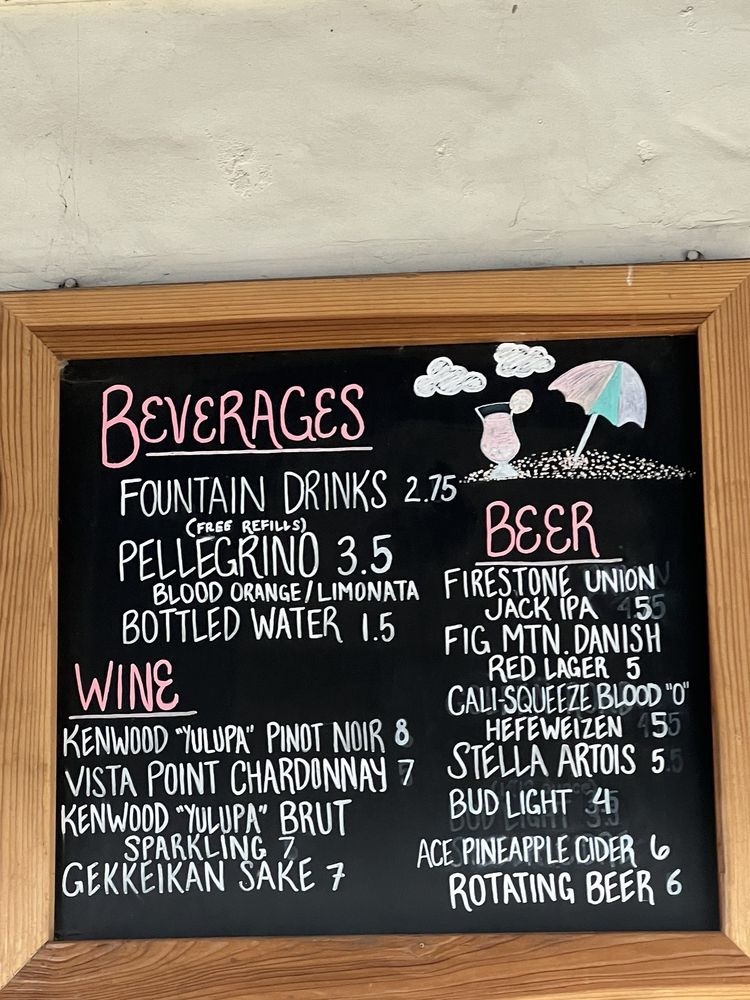 BEVERAGES
FOUNTAIN DRINKS 2.75
(FREE REFILLS)
PELLEGRINO 3.5
BLOOD ORANGE/LIMONATA
BOTTLED WATER 1.5
WINE
KENWOOD "YULUPA" PINOT NOIR 8
VISTA POINT CHARDONNAY 7
KENWOOD "YULUPA" BRUT
SPARKLING 7
GEKKEIKAN SAKE 7
BEER
FIRESTONE UNION
JACK IPA 5
FIG MTN. DANISH
RED LAGER 5
CALI-SQUEEZE BLOOD "O"
HEFEWEIZEN 5
STELLA ARTOIS 5
BUD LIGHT 4
ACE PINEAPPLE CIDER 6
ROTATING BEER 6